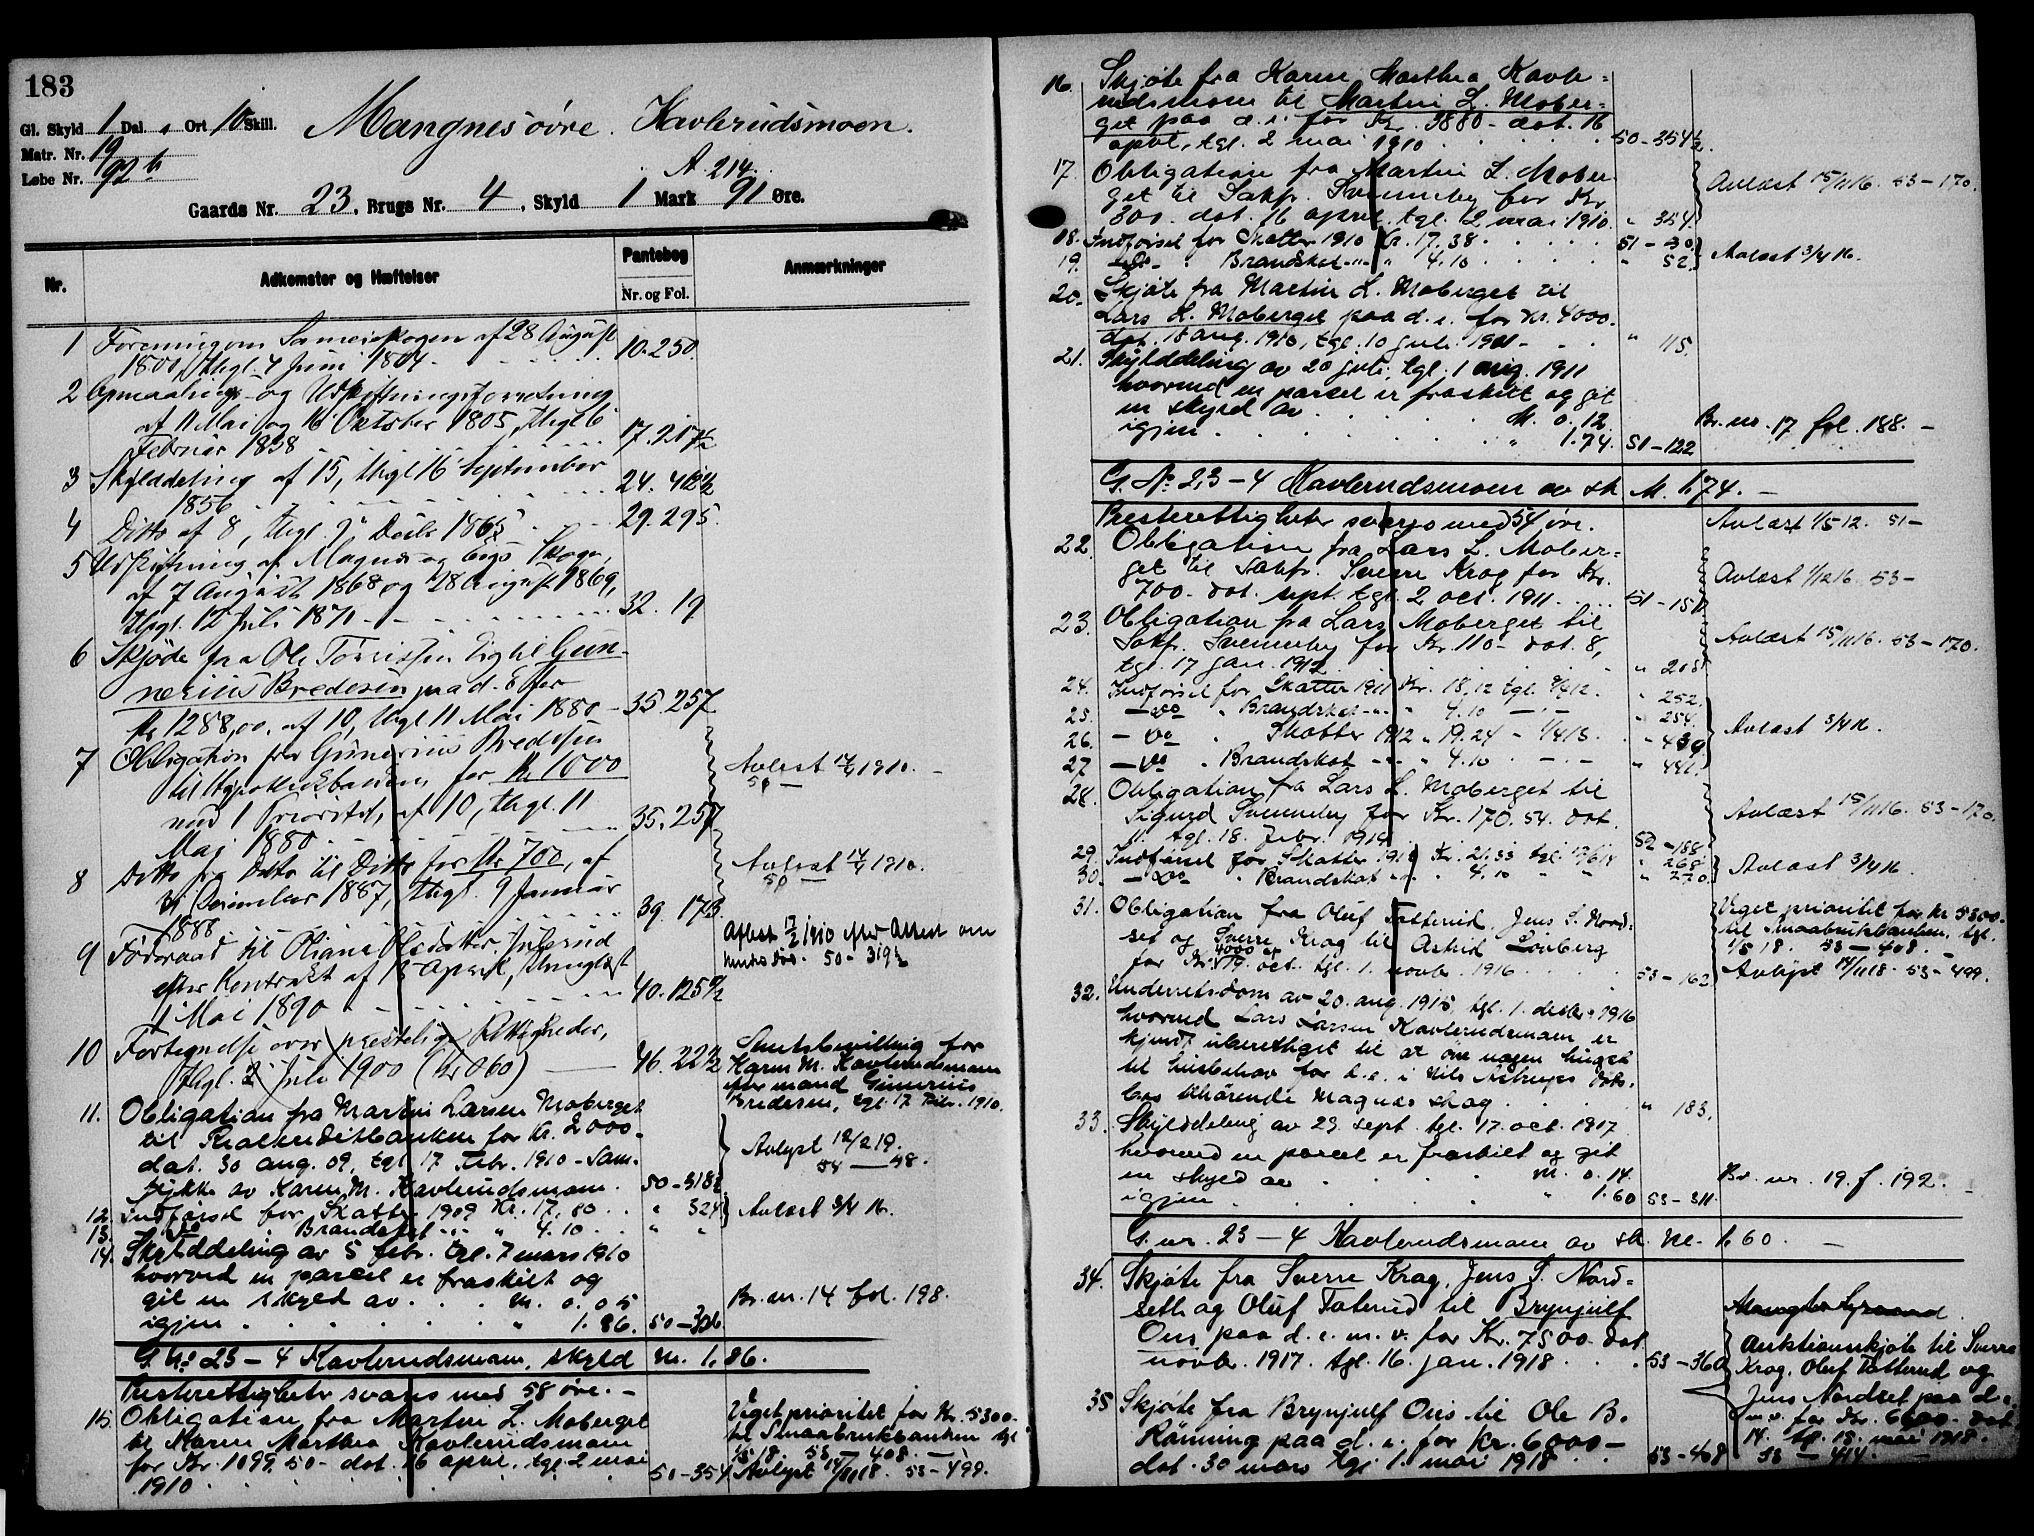 183
Gl. Skyld 1 Dal. " Ort 10 Skill. Mangnes øvre. Kavlerudsmoen.
Matr. Nr. 19
Løbe Nr. 92 b A 214.
Gaards Nr. 23, Brugs Nr. 4, Skyld 1 Mark 91 Øre.
Nr. Adkomster og Hæftelser Pantebog Nr. og Fol. Anmærkninger
1 Forening om Sameieskogen af 28 August
1801, thgl. 4 Juni 1804 10.250
2 Opmaalings- og Udskiftningsforretning
af 11 Mai og 16 Oktober 1805, thgl 6
Februar 1838 17.217½
3 Skylddeling af 15, thgl 16 September
1856 24.412½
4 Ditto af 8, thgl. 9 Decbr 1865 29.295.
5 Udskiftning af Magnes og Eigs Skoge,
af 7 August 1868 og 28 August 1869,
thgl. 12 Juli 1871 32.19
6 Skjøde fra Ole Torrissen Eig til Gun-
nerius Bredesen paa d. E. for
Kr 1288,00, af 10, thgl 11 Mai 1880 35.257
7 Obligation fra Gunerius Bredesen
til Hypothekbanken for Kr 1000
med 1 Prioritet, af 10, thgl. 11
Maj 1880 35.257
Avlest 14/4 1910.
50 —
8 Ditto fra Ditto til Ditto for Kr 700, af
31 December 1887, thgl. 9 Januar
1888 39.173.
Avlest 14/4 1910.
50 —
9 Føderaad til Oliane Olsdatter Julsrud
efter Kontrakt af 15 April, thinglæst
1 Mai 1890 40.125½
Aflest 17/2 1910 efter Attest om
hendes død. 50 - 319½
10 Fortegnelse over præstelige Rettigheder,
thgl. 2 Juli 1900 (Kr 0.60) 46.22½
Skiftebevilling for
Karen M. Kavlerudsmoen
efter mand Gunerius
Bredesen, tgl. 17 Febr. 1910.
11. Obligation fra Martin Larsen Moberget
til Realkreditbanken for Kr. 2000-
dat. 30 aug. 09, tgl. 17 Febr. 1910 - Sam-
tykke av Karen M. Kavlerudsmoen. 50-318½
Avlyst 12/2 19.
54 — 48.
12. Indførsel for Skatter 1909 Kr. 17.80 " 324
13. - Do - " Brandskat - " - " 4.10 " "
Avlæst 3/4 16.
14. Skylddeling av 5 febr. tgl. 7 mars 1910
hvorved en parcel er fraskilt og
git en skyld av M. 0.05
igjen " 1.86. 50-326
Br. nr. 14 fol. 198.
G. No 23 - 4 Kavlerudsmoen, skyld M. 1.86.
Presterettigheter svares med 58 øre. -
15. Obligation fra Martin L. Moberget
til Karen Marthea Kavlerudsmoen
for Kr. 1099.50 - dat. 16 april, tgl. 2 mai
1910 50-354
Veget prioritet for Kr. 5300-
til Smaabrukbanken tgl
1/5 18. 53 — 408. —
Avlyst 14/11 18. 53-499.
16. Skjøte fra Karen Marthea Kavle-
rudsmoen til Martin L. Mober-
get paa d. e. for Kr. 3880 - dat. 16
april, tgl. 2 mai 1910 50-354½.
17. Obligation fra Martin L. Mober-
get til Sakf. Svenneby for Kr.
300. dat. 16 april, tgl. 2 mai 1910. " 354.
Avlæst 15/11 16. 53-170.
18. Indførsel for Skatter 1910 Kr. 17.38 51-30
19. - Do - " Brandskat - " - " 4.10 " 52
Avlæst 3/4 16.
20. Skjøte fra Martin L. Moberget til
Lars L. Moberget paa d. e. for Kr. 4000.
dat. 18 aug. 1910, tgl. 10 juli 1911 - " 115.
21. Skylddeling av 20 juli, tgl. 1 aug. 1911
hvorved en parcel er fraskilt og git
en skyld av M. 0.12
igjen " 1.74. 51-122
Br. nr. 17 fol. 188. -
G. No 23-4 Kavlerudsmoen av sk. M. 1.74. -
Presterettigheter svares med 54 øre.
Avlæst 1/5 12. 51 -
22. Obligation fra Lars L. Mober-
get til Sakf. Sverre Krag for Kr.
700- dat. sept. tgl. 2 oct. 1911. 51-151
Avlæst 1/12 16. 53 -
23. Obligation fra Lars Moberget til
Sakf. Svenneby for Kr. 110- dat. 8,
tgl. 17 jan. 1912 " 208
Avlæst 15/11 16. 53-170.
24. Indførsel for Skatter 1911 Kr. 18.12 tgl. 9/4 12. " 252.
25. - Do - " Brandskat - " - " 4.10 — " — " 254.
26. - Do " Skatter 1912 " 19.24 - 1/4 13. " 439
27 - Do " Brandskat - " - " 4.10 - " - " 441.
Avlæst 3/4 16.
28. Obligation fra Lars L. Moberget til
Sigurd Svenneby for Kr. 170.54. dat.
11. tgl. 18. febr. 1914 52-188
Avlæst 15/11 16. 53-170.
29. Indførsel for Skatter 1913 Kr. 21.33 tgl. 13/6 14 " 268
30. - Do - " Brandskat - " - " 4.10 " " " 270.
Avlæst 3/4 16.
31. Obligation fra Oluf Tatterud, Jens S. Nord-
set og Sverre Krag til Astrid Lovberg
for Kr. 4000 af 19. oct. tgl. 1. novbr. 1916 53-162
Veget prioritet for Kr. 5300-
til Smaabrukbanken, tgl.
1/5 18. 53-408.
Avlyst 14/11 18. 53-499.
32. Underretsdom av 20. aug. 1915, tgl. 1. decbr. 1916
hvorved Lars Larsen Kavlerudsmoen er
kjendt uberettiget til at øve nogen hugst
til husbehov for d. e. i Nils Astrups Døds-
bos tilhørende Magnes skog " 183.
33. Skylddeling av 29. sept. tgl. 17. oct. 1917
hvorved en parcel er fraskilt og git
en skyld av M. 0.14.
igjen " 1.60 53-311.
Br. nr. 19. f. 192. -
G. nr. 23 - 4 Kavlerudsmoen av sk. M. 1.60. -
34. Skjøte fra Sverre Krag, Jens S. Nord-
seth og Oluf Taterud til Brynjulf
Ous paa d. e. m. v. for Kr. 7500. dat.
novbr. 1917. tgl. 16. jan. 1918 53-360
Auktionsskjøte til Sverre
Krag, Oluf Tatterud og
Jens Nordset paa d. e.
m. v. for Kr. 6600. dat.
14. tgl. 15. mai 1918.
53 — 414. —
35 Skjøte fra Brynjulf Ous til Ole B.
Rønning paa d. e. for Kr. 6000 -
dat. 30 mars tgl. 1. mai 1918 53-408